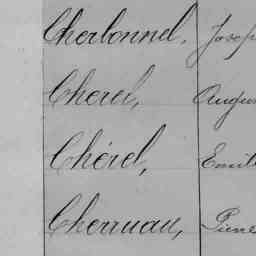 Cherbonnel, Josep
Cherel, Augus
Chérel, Emil
Cherruau, Pierre